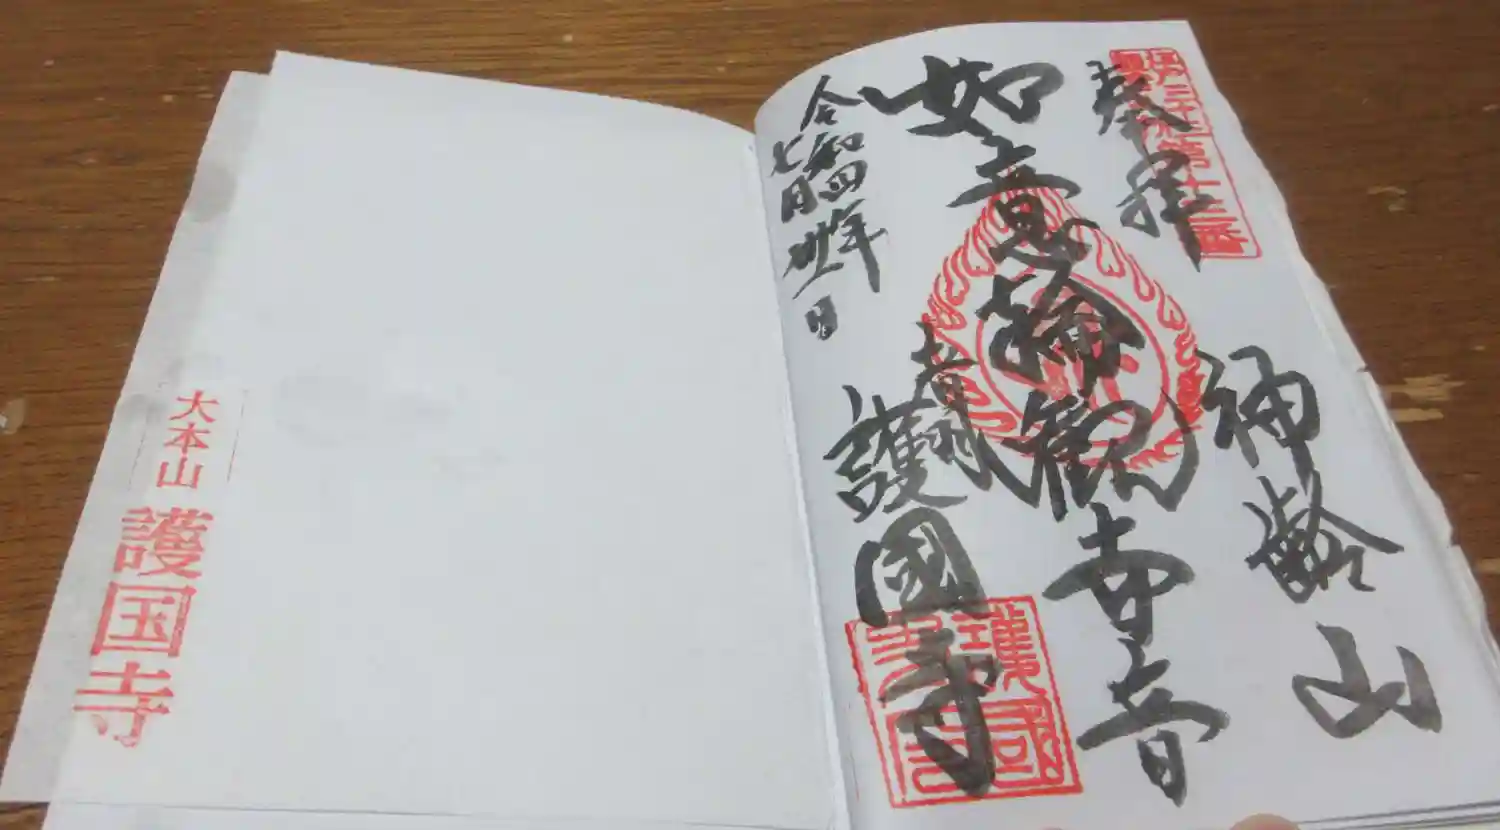 第十三番
奉拝
神齢山
如意輪観世音
音羽
護國寺
令和四年
七月卅一日
大本山 護国寺